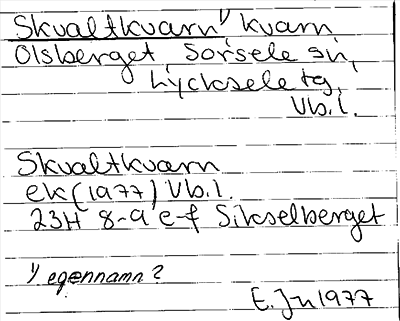 Skvaltkvarn¹⁾, kvarn
Olsberget, Sorsele sn,
Lycksele tg,
Vb.l.
Skvaltkvarn
ek (1977) Vb.l.
23H 8-9 e-f Sikselberget
¹⁾ egennamn?
E. Jn 1977